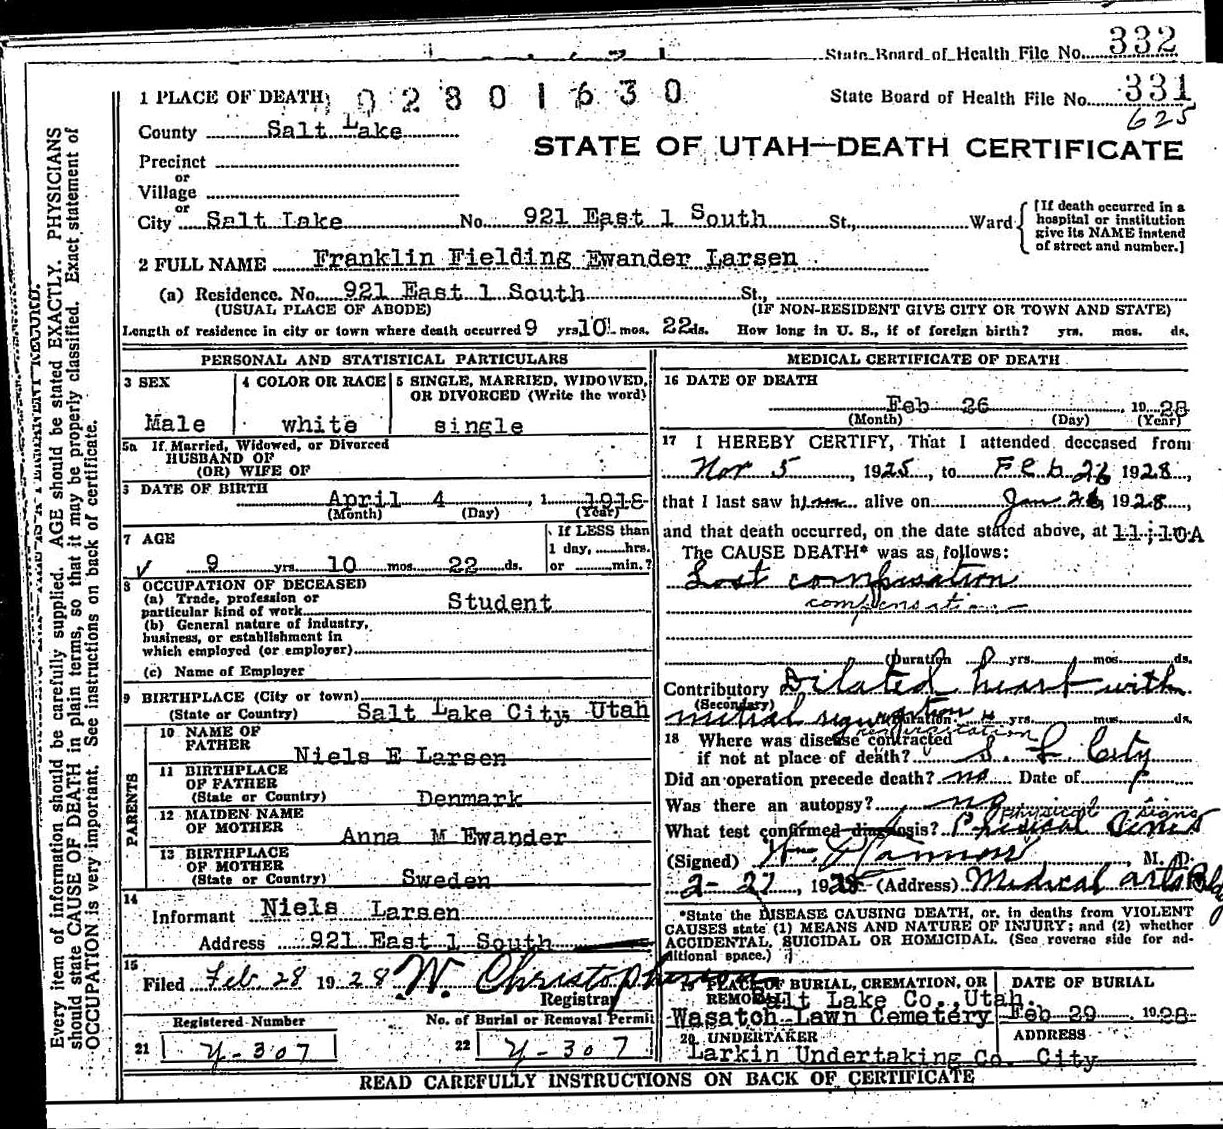 State Board of Health File No. 332
1 PLACE OF DEATH 02801630 State Board of Health File No. 331
625
County Salt Lake
STATE OF UTAH—DEATH CERTIFICATE
Precinct
or
Village
or
City Salt Lake No. 921 East 1 South St., Ward
[If death occurred in a
hospital or institution
give its NAME instead
of street and number.]
2 FULL NAME Franklin Fielding Ewander Larsen
(a) Residence. No. 921 East 1 South St.,
(USUAL PLACE OF ABODE) (IF NON-RESIDENT GIVE CITY OR TOWN AND STATE)
Length of residence in city or town where death occurred 9 yrs 10 mos. 22 ds. How long in U. S., if of foreign birth? yrs. mos. ds.
PERSONAL AND STATISTICAL PARTICULARS
3 SEX 4 COLOR OR RACE 5 SINGLE, MARRIED, WIDOWED,
OR DIVORCED (Write the word)
Male white single
5a If Married, Widowed, or Divorced
HUSBAND OF
(OR) WIFE OF
DATE OF BIRTH
April 4, 1918
(Month) (Day) (Year)
7 AGE If LESS than
1 day, hrs.
9 yrs. 10 mos. 22 ds. or min.?
8 OCCUPATION OF DECEASED
(a) Trade, profession or
particular kind of work Student
(b) General nature of industry,
business, or establishment in
which employed (or employer)
(c) Name of Employer
9 BIRTHPLACE (City or town)
(State or Country) Salt Lake City, Utah
PARENTS
10 NAME OF
FATHER Niels E Larsen
11 BIRTHPLACE
OF FATHER
(State or Country) Denmark
12 MAIDEN NAME
OF MOTHER Anna M Ewander
13 BIRTHPLACE
OF MOTHER
(State or Country) Sweden
14
Informant Niels Larsen
Address 921 East 1 South
15
Filed Feb 28 1928 W. Christopherson
Registrar
Registered Number No. of Burial or Removal Permit
21 Y-307 22 Y-307
MEDICAL CERTIFICATE OF DEATH
16 DATE OF DEATH
Feb 26, 1928
(Month) (Day) (Year)
17 I HEREBY CERTIFY, That I attended deceased from
Nov 5, 1925, to Feb 26 1928,
that I last saw him alive on Jan 26, 1928,
and that death occurred, on the date stated above, at 11:10A
The CAUSE DEATH* was as follows:
Lost compensation
compensation
(Duration yrs. mos. ds.
Contributory Dilated heart with
(Secondary)
mitral regurgitation (Duration yrs. mos. ds.
regurgitation
18 Where was disease contracted
if not at place of death? S. L. City
Did an operation precede death? no Date of
Was there an autopsy? no
Physical signs
What test confirmed diagnosis? Physical Signs
(Signed) Wm. , M. D.
2-27, 1928 (Address) Medical Arts Bldg
*State the DISEASE CAUSING DEATH, or, in deaths from VIOLENT
CAUSES state (1) MEANS AND NATURE OF INJURY; and (2) whether
ACCIDENTAL, SUICIDAL OR HOMICIDAL. (See reverse side for ad-
ditional space.)
19 PLACE OF BURIAL, CREMATION, OR DATE OF BURIAL
REMOVAL Salt Lake Co., Utah.
Wasatch Lawn Cemetery Feb 29 1928
20 UNDERTAKER ADDRESS
Larkin Undertaking Co. City
READ CAREFULLY INSTRUCTIONS ON BACK OF CERTIFICATE
Every item of information should be carefully supplied. AGE should be stated EXACTLY. PHYSICIANS
should state CAUSE OF DEATH in plain terms, so that it may be properly classified. Exact statement of
OCCUPATION is very important. See instructions on back of certificate.